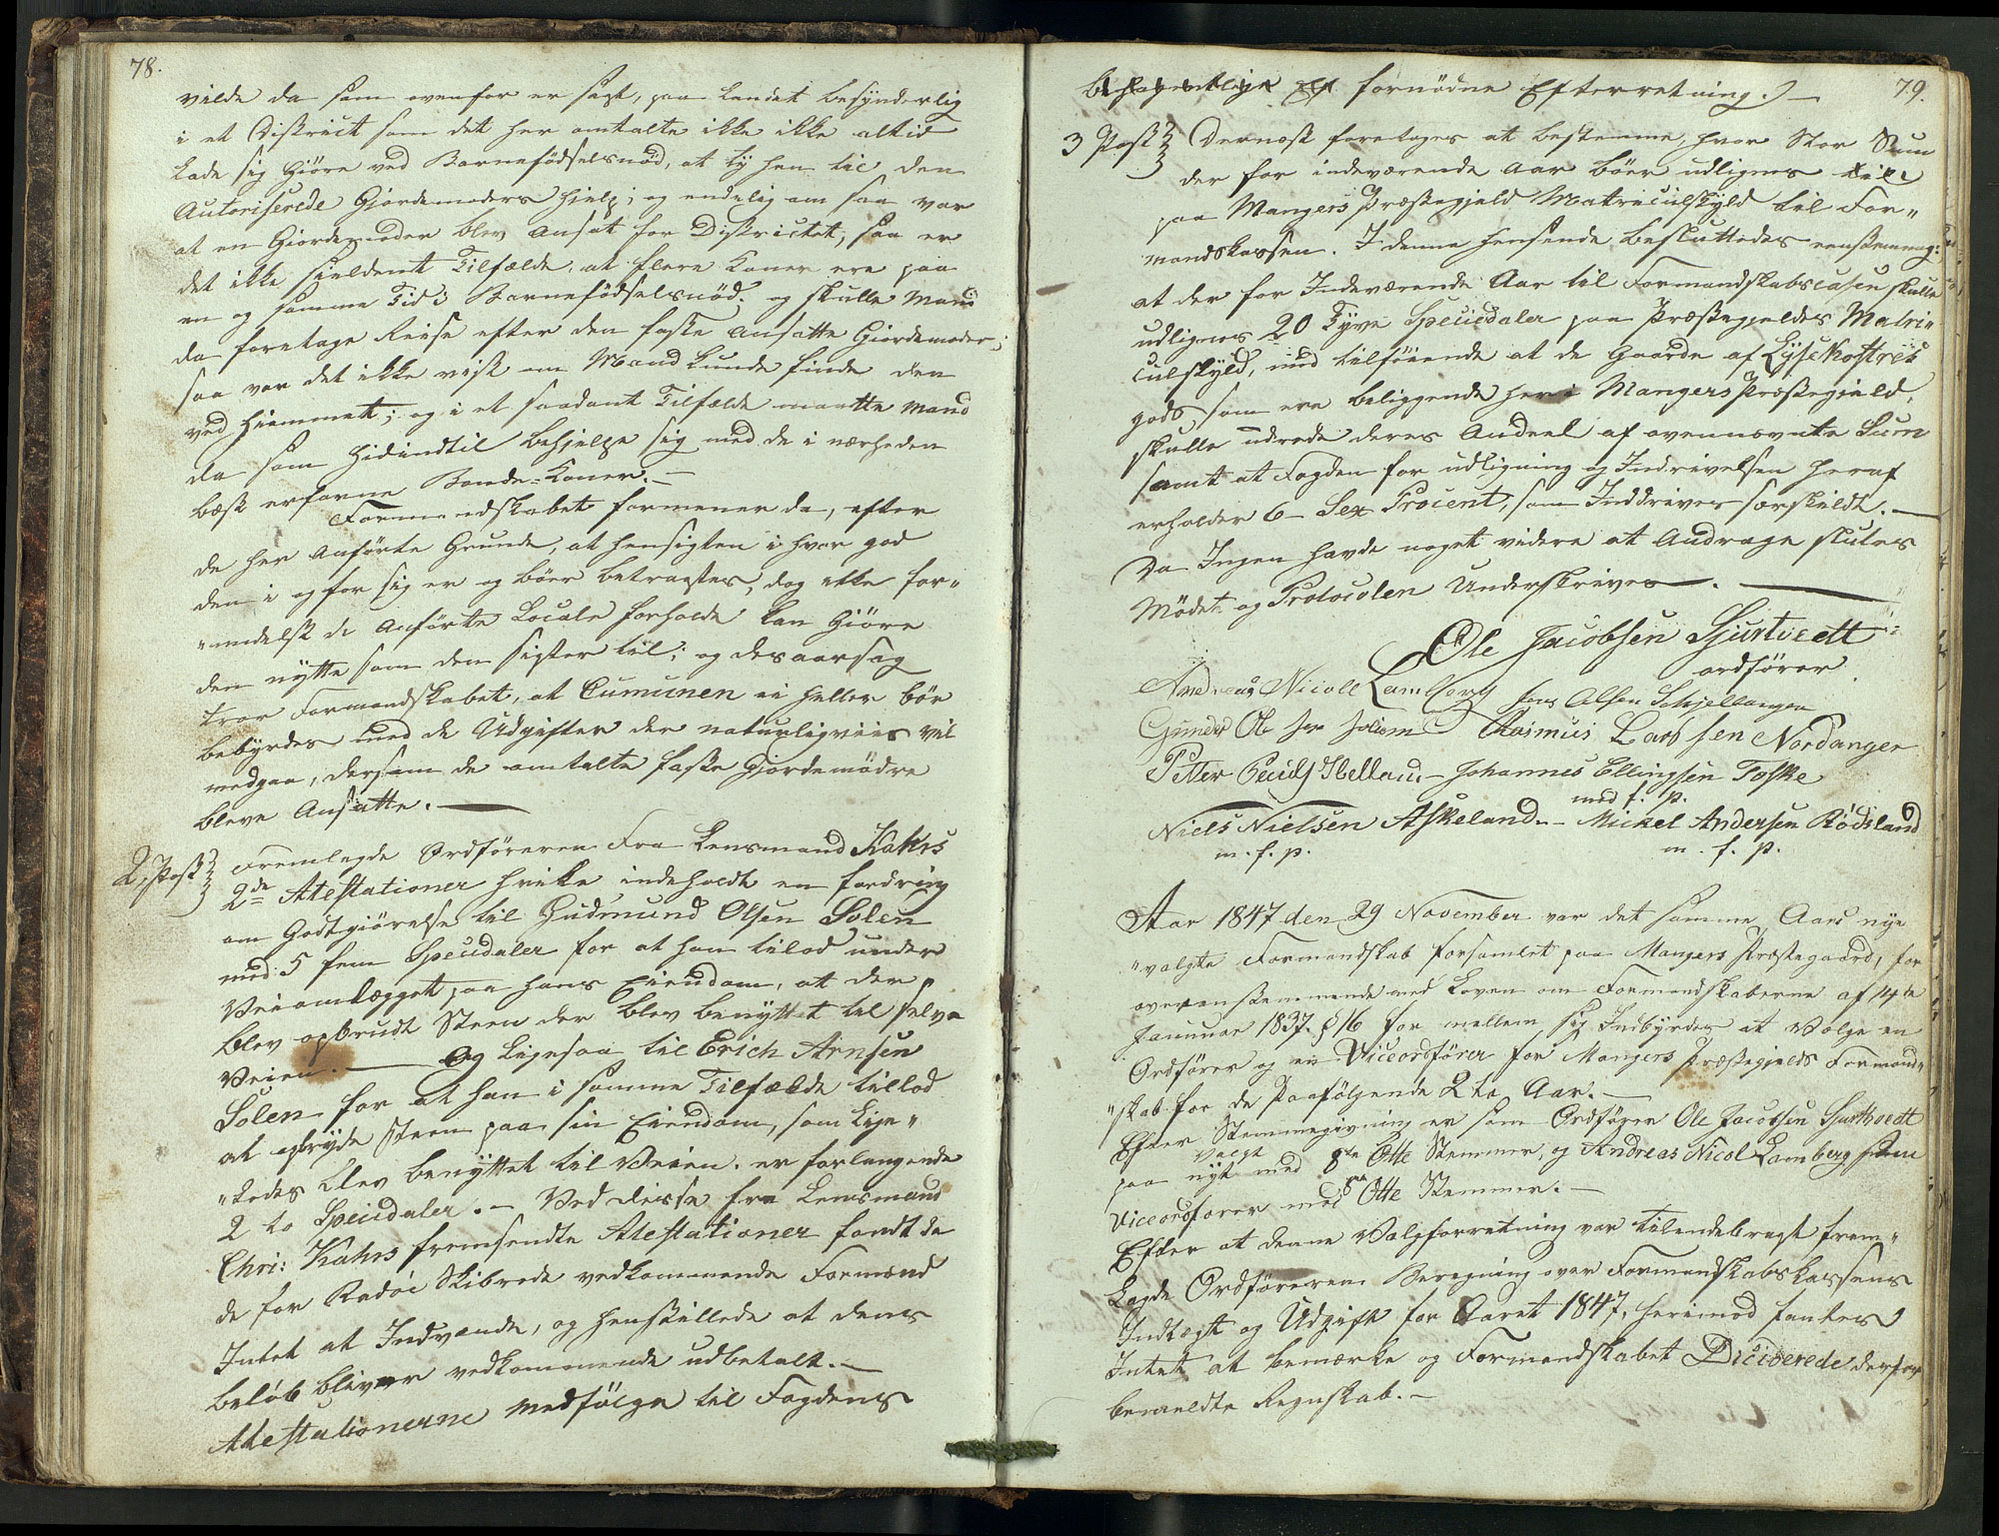 78.
vilde da som ovenfor er sagt, paa Landet besynderlig
i et District som det her omtalte ikke ikke altid
lade sig Giöre ved Barnefödselsnöd, at ty hen til den
Autoriserede Gjordemoders Hjelp; og endelig om saa var
at en Giordemoder blev Ansat for Districtet, saa er
det ikke sieldent Tilfælde, at flere Koner ere paa
en og samme Tid i Barnefödselsnöd. og skulle Mand
da foretage Reise efter den faste ansatte Giordemoder,
saa var det ikke vist om Mand kunde finde den
ved Hiemmet; og i et saadant Tilfælde maatte Mand
da som hidindtil behjelpe sig med de i nærheden
bæst erfarne Bonde-Koner.—
Formandskabet formener da, efter
de her Anförte Grunde, at hensigten i hvor god
den i og for sig er og böer betragtes, dog ikke for„
„medelst de Anförte Locale forholde kan Giöre
den nytte som den sigter til; og desaarsag
troer Formandskabet, at Cumunen ei heller bör
bebyrdes med de Udgifter der naturligviis vil
medgaa, dersom de omtalte faste Gjordemödre
bleve Ansatte.—
2, Post Fremlagde Ordföreren fra Lensmand Kahrs
2de Atestationer hvilke indeholdt en fordring
om Godtgiörelse til Gudmund Olsen Solem
med 5 fem Speciedaler for at han tilod under
Veiomlægget paa hans Eiendom, at der
blev opbrudt Steen der blev benyttet til selve
Veien.— Og ligesaa til Erich Arnsen
Solem for at han i samme Tilfælde tillod
at opbryde Steen paa sin Eiendom, som lige„
„ledes blev benyttet til Veien. er forlangende
2 to Speciedaler.— Ved disse fra Lensmand
Chri: Kahrs fremsendte Atestationer fandt de
de for Radöe Skibrede vedkommende Formænd
Intet at Indvænde, og henstillede at dens
belöb bliver vedkommende udbetalt.—
Atestationerne medfölge til Fogdens
79.
behagentlige fornödne Efterretning.—
3 Post Dernæst foretoges at bestemme hvor Stor Sum
der for indeværende Aar böer udlignes
paa Mangers Præstegjeld Matriculskyld til For„
mandskassen. I denne hensende besluttedes eenstemmig:
at der for Indeværende Aar til Formandskabscasen skulle
udlignes 20 Tyve Speciedaler paa Præstegjeldes Matri„
culskyld, med tilföiende at de Gaarde af Lyse Klosters
gods, som ere beliggende her i Mangers Præstegjeld,
skulle udrede deres Andeel af ovennævnte Sum
samt at Fogden for udligning og Indrivelsen heraf
erholder 6– Sex Procent, som Inddrives særskildt.—
Da Ingen havde noget videre at Andrage slutes
Mödet og Protocolen Underskrives.—
Ole Jacobsen Sjurtveett
ordförer.
Andreas Nicoll Lamberg Jens Olsen Schjellanger
Gunder Ole Rasmus Lars sen Nordanger
Petter Helland – Johannes Ellingsen Toske
med f. p.
Niels Nielsen Askeland – Mickel Andersen Rödsland
m. f. p. m. f. p.
Aar 1847 den 29 November var det samme Aars nye
„valgte Formandskab forsamlet paa Mangers Præstegaard, for
overeenstemmende med Loven om Formandskaberne af 14de
Januar 1837. § 16 for mellem sig Indbyrdes at Vælge en
Ordförer og en Viceordförer for Mangers Præstegjelds Formand„
„skab for de Paafölgende 2to Aar.—
Efter Stemmegivning er som Ordförer Ole Jacobsen Sjurtveett
valgt
paa nyt med 8te Otte Stemmer, og Andreas Nicol Lamberg som
Viceordforer med 8te Otte Stemmer.—
Efter at denne Valgforretning var tilendebragt frem„
lagde Ordföreren Beregning over Formandskabskassens
Indtægt og Udgift for Aaret 1847, herimod fantes
Intet at bemærke og Formandskabet Diciderede derfor
bemeldte Regnskab.—